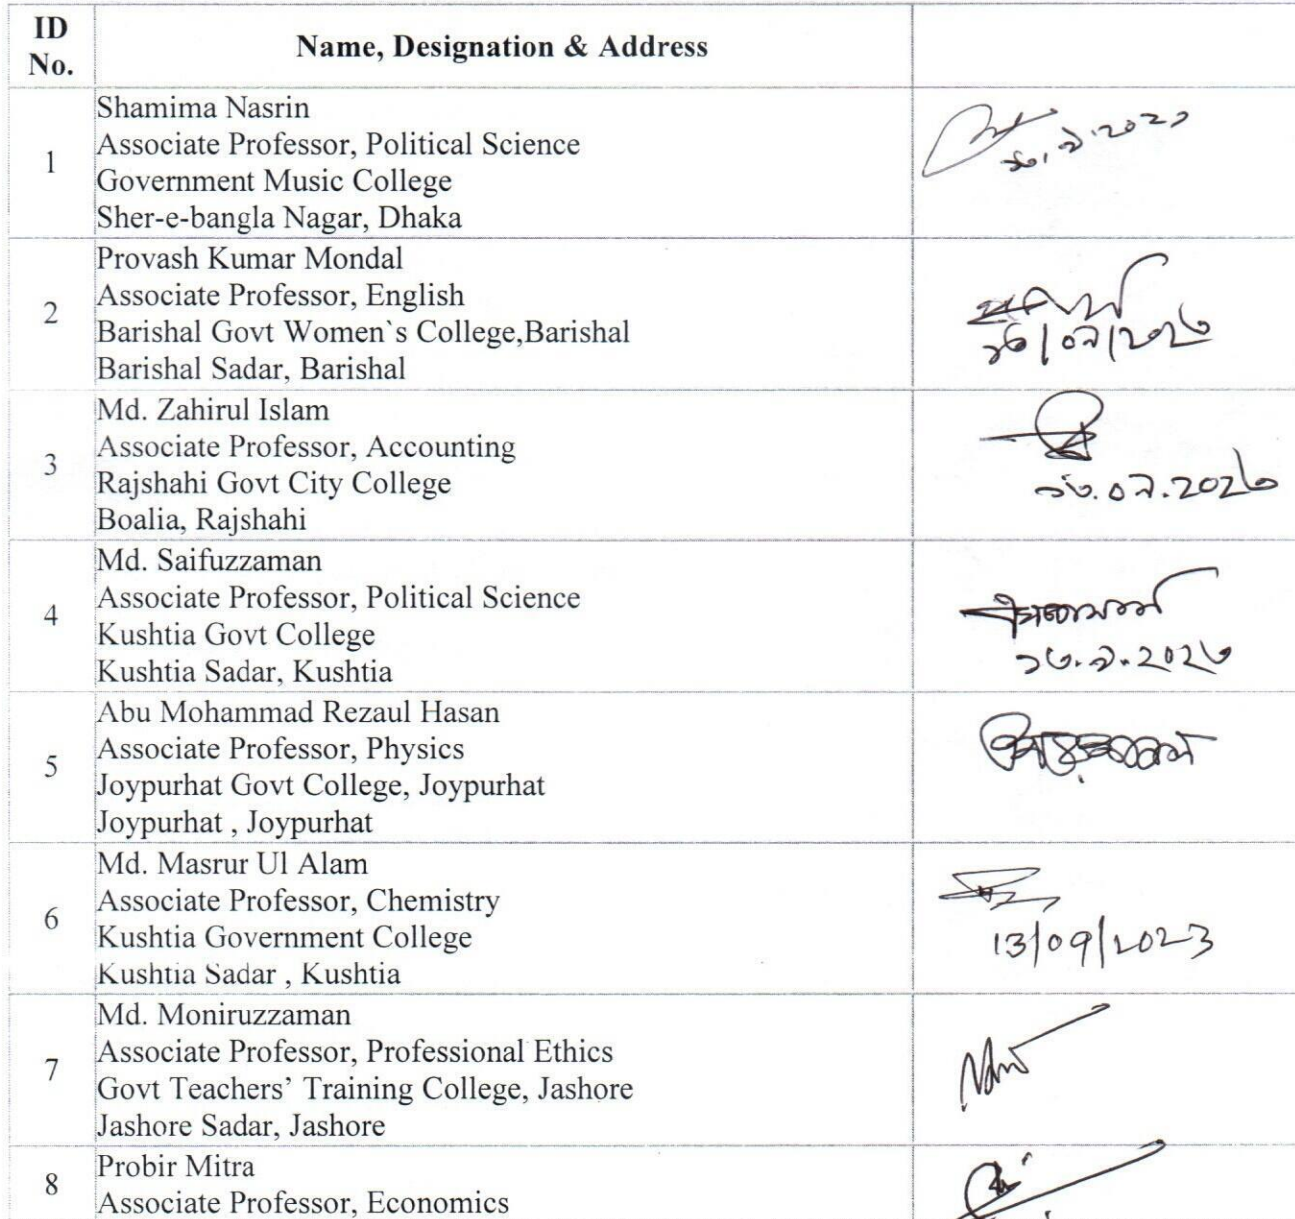 ID
No.
Name, Designation & Address
1
Shamima Nasrin
Associate Professor, Political Science
Government Music College
Sher-e-bangla Nagar, Dhaka
2
Provash Kumar Mondal
Associate Professor, English
Barishal Govt Women`s College,Barishal
Barishal Sadar, Barishal
১৩/০৯/২০২৩
3
Md. Zahirul Islam
Associate Professor, Accounting
Rajshahi Govt City College
Boalia, Rajshahi
১৩.০৯.২০২৩
4
Md. Saifuzzaman
Associate Professor, Political Science
Kushtia Govt College
Kushtia Sadar, Kushtia
১৩.৯.২০২৩
5
Abu Mohammad Rezaul Hasan
Associate Professor, Physics
Joypurhat Govt College, Joypurhat
Joypurhat , Joypurhat
6
Md. Masrur Ul Alam
Associate Professor, Chemistry
Kushtia Government College
Kushtia Sadar , Kushtia
13/09/2023
7
Md. Moniruzzaman
Associate Professor, Professional Ethics
Govt Teachers’ Training College, Jashore
Jashore Sadar, Jashore
8
Probir Mitra
Associate Professor, Economics